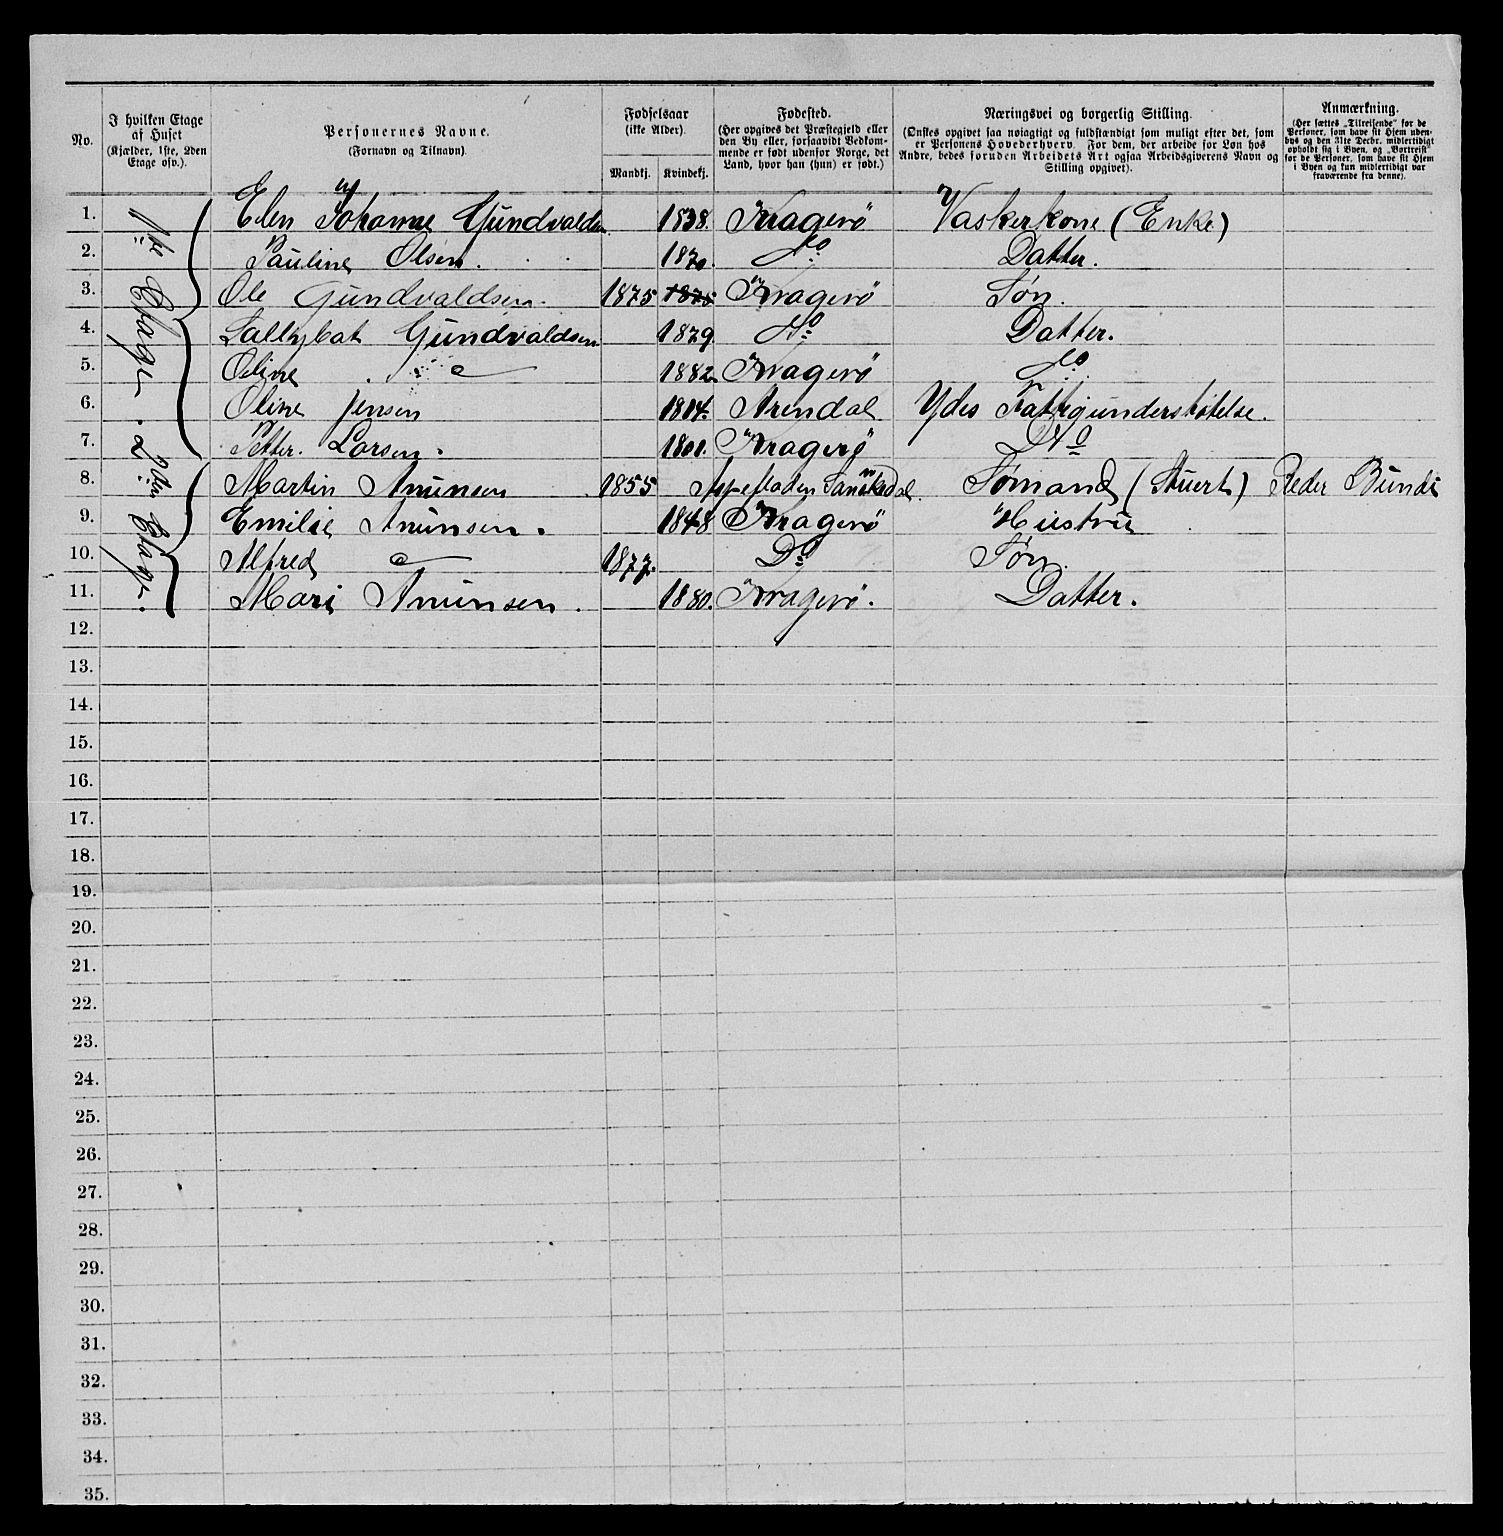 No.
I hvilken Etage af Huset (Kjælder, 1ste, 2den Etage osv.).
Personernes Navne. (Fornavn og Tilnavn).
Fødselsaar (ikke Alder).
Mandkj. Kvindekj.
Fødested. (Her opgives det Præstegjeld eller den By eller, forsaavidt Vedkommende er født udenfor Norge, det Land, hvor han (hun) er født.)
Næringsvei og borgerlig Stilling. (Ønskes opgivet saa nøiagtigt og fuldstændigt som muligt efter det, som er Personens Hovederhverv. For dem, der arbeide for Løn hos Andre, bedes foruden Arbeidets Art ogsaa Arbeidsgiverens Navn og Stilling opgivet).
Anmærkning. (Her sættes „Tilreisende“ for de Personer, som have sit Hjem udenbys og den 31te Decbr. midlertidigt opholdt sig i Byen, og „Bortreist“ for de Personer, som have sit Hjem i Byen og kun midlertidigt var fraværende fra denne).
1ste Etage.
1. Elen Johanne Gundvaldsen 1838. Kragerö Vaskerkone (Enke)
2. Pauline Olsen. 1870. Do Datter.
3. Ole Gundvaldsen. 1875 1875 Kragerö Søn.
4. Gundvaldsen 1879. Do Datter.
5. Oline 1882 Kragerö do
6. Oline Jensen 1814. Arendal Ydes Fattigunderstøtelse.
7. Petter. Larsen. 1801. Kragerö Do
2den Etage.
8. Martin Anunsen 1855 Sannikedal. Sømand (Stuert) Reder Bundi
9. Emilie Anunsen. 1848 Kragerö Hustru
10. Alfred 1877. Do Søn.
11. Mari Anunsen. 1880. Kragerö. Datter.
12.
13.
14.
15.
16.
17.
18.
19.
20.
21.
22.
23.
24.
25.
26.
27.
28.
29.
30.
31.
32.
33.
34.
35.